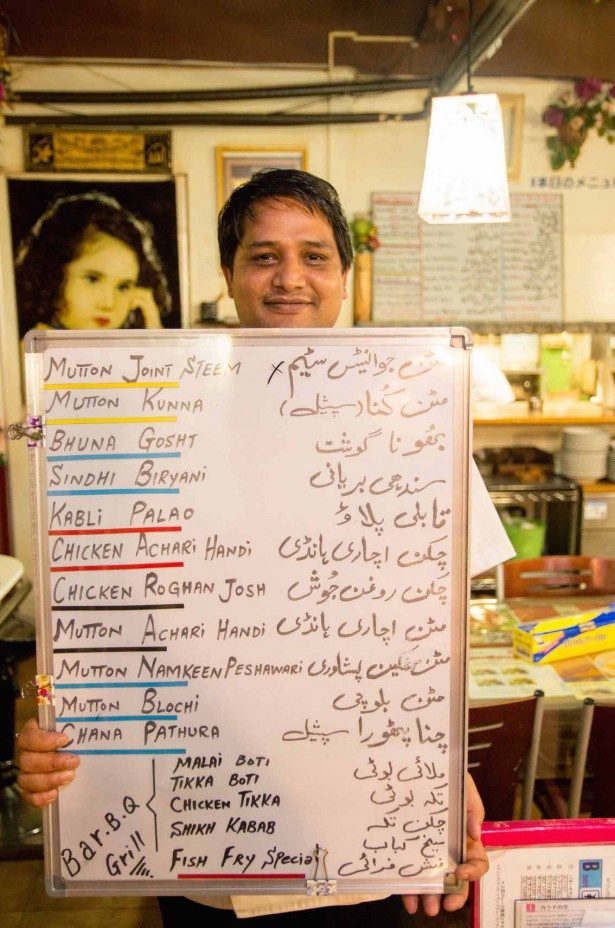 本日のメニュー
MUTTON JOINT STEEM x مٹن جوائینٹس سٹیم
MUTTON KUNNA مٹن کُنا (سپیشل)
BHUNA GOSHT بھُونا گوشت
SINDHI BIRYANI سندھی بریانی
KABLI PALAO قابلی پلاؤ
CHICKEN ACHARI HANDI چکن اچاری ہانڈی
CHICKEN ROGHAN JOSH چکن روغن جُوش
MUTTON ACHARI HANDI مٹن اچاری ہانڈی
MUTTON NAMKEEN PESHAWARI مٹن نمکین پشاوری
MUTTON BLOCHI مٹن بلوچی
CHANA PATHURA چنا پٹھورا سپیشل
Bar.B.Q Grill
MALAI BOTI ملائی بوٹی
TIKKA BOTI تکہ بوٹی
CHICKEN TIKKA چکن تکہ
SHIKH KABAB سیخ کباب
FISH FRY SPECIAL فش فرائی